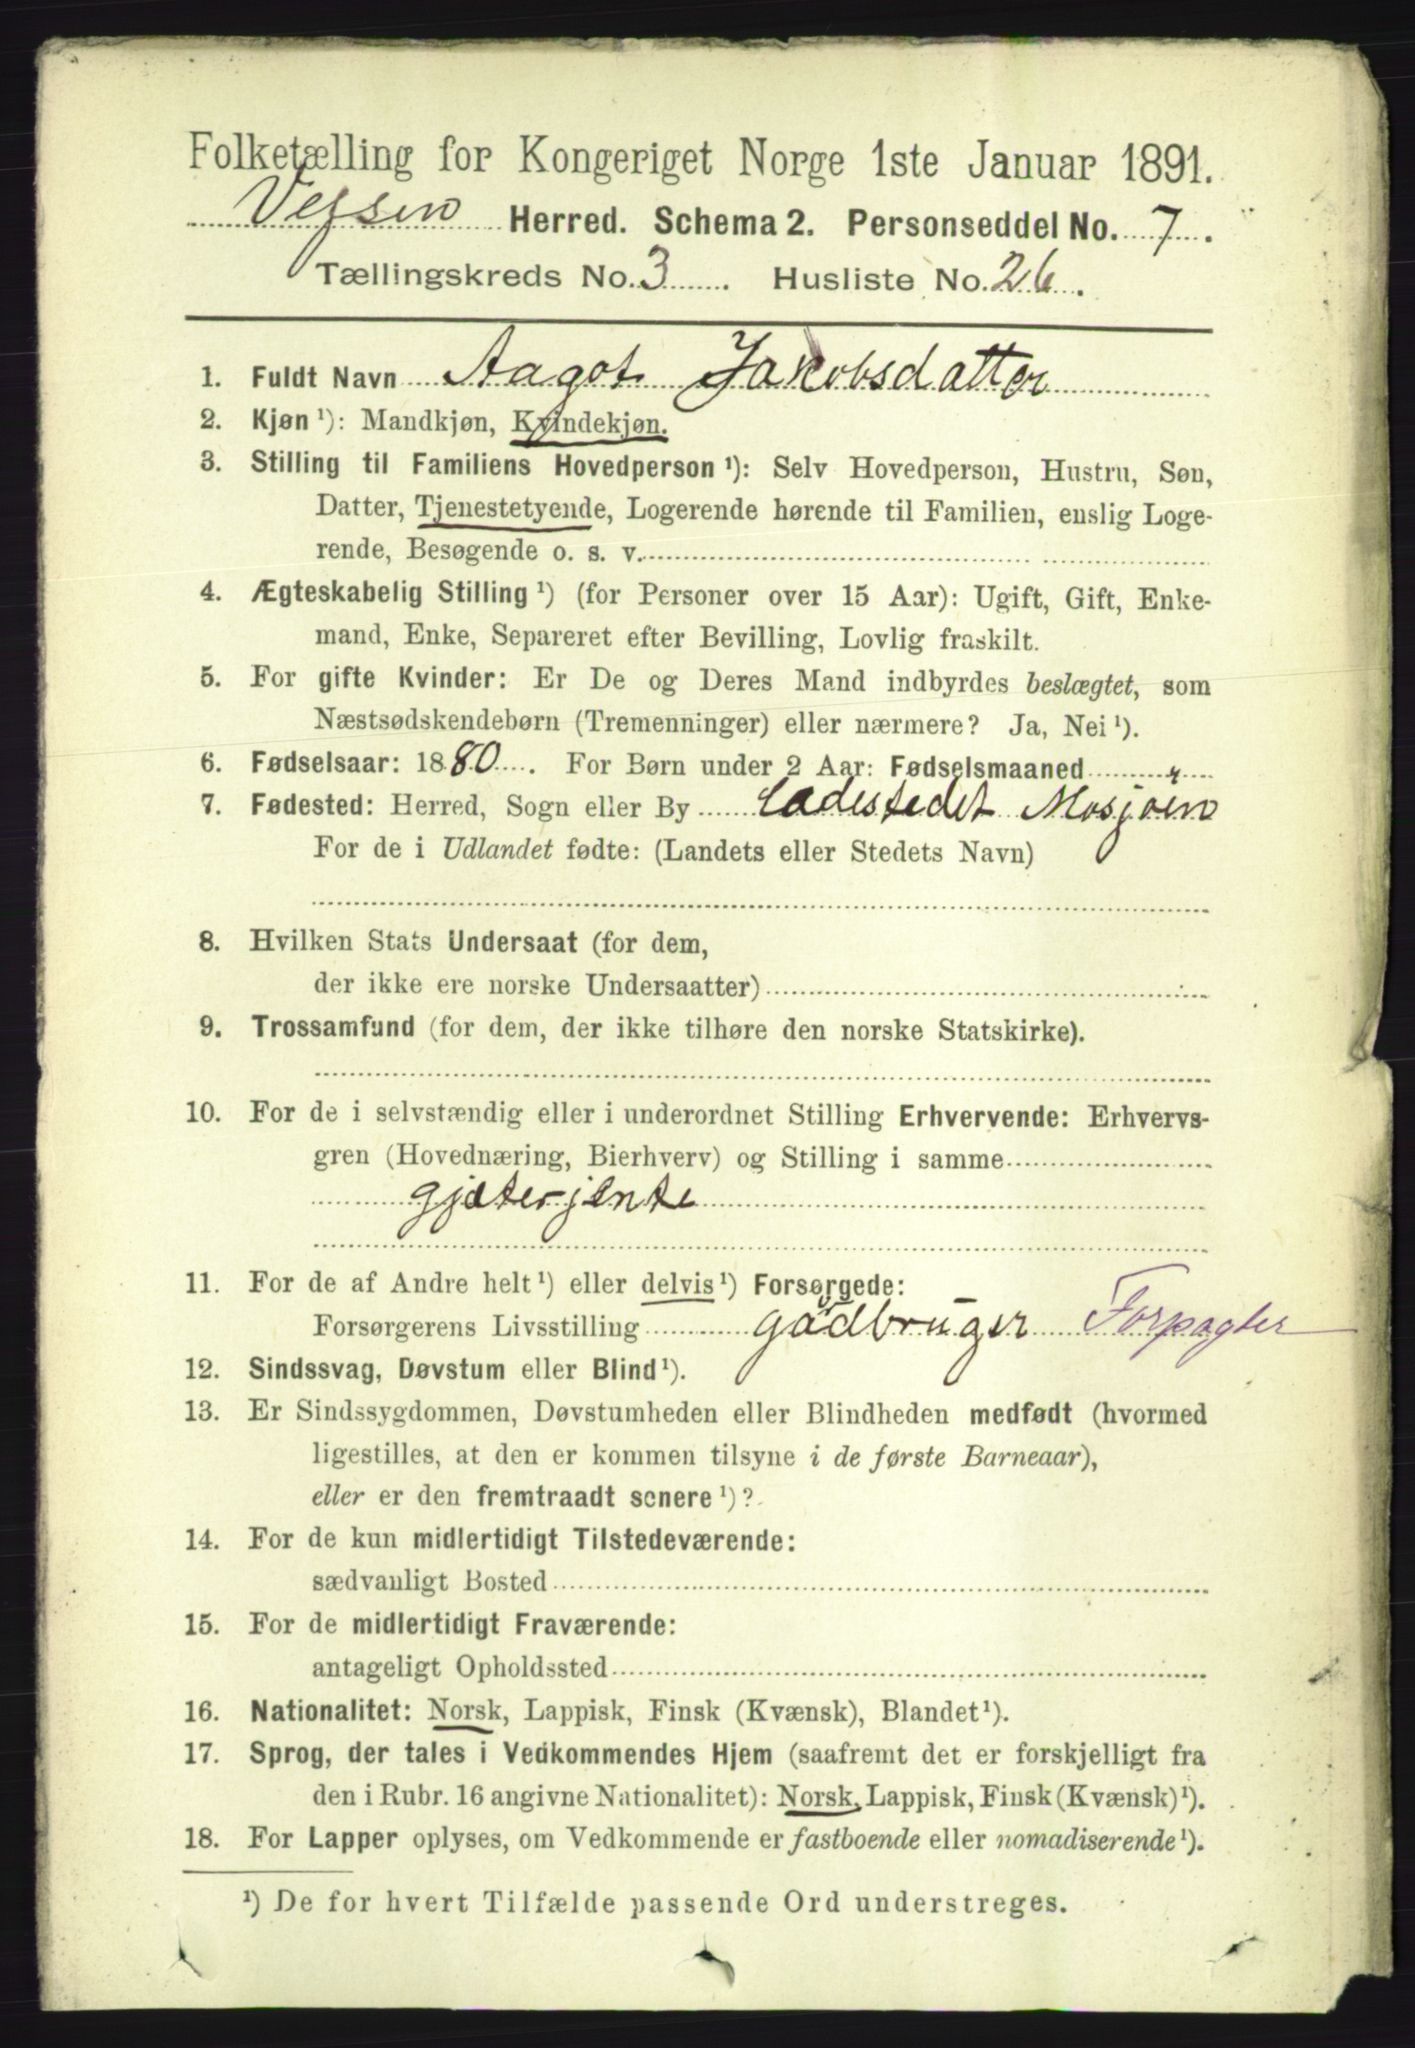 Folketælling for Kongeriget Norge 1ste Januar 1891.
Vefsen Herred. Schema 2. Personseddel No. 7.
Tællingskreds No. 3. Husliste No. 26.
1. Fuldt Navn Aagot Jakobsdatter
2. Kjøn ¹): Mandkjøn, Kvindekjøn.
3. Stilling til Familiens Hovedperson ¹): Selv Hovedperson, Hustru, Søn,
Datter, Tjenestetyende, Logerende hørende til Familien, enslig Loge-
rende, Besøgende o. s. v.
4. Ægteskabelig Stilling ¹) (for Personer over 15 Aar): Ugift, Gift, Enke-
mand, Enke, Separeret efter Bevilling, Lovlig fraskilt.
5. For gifte Kvinder: Er De og Deres Mand indbyrdes beslægtet, som
Næstsødskendebørn (Tremenninger) eller nærmere? Ja, Nei ¹).
6. Fødselsaar: 1880. For Børn under 2 Aar: Fødselsmaaned
7. Fødested: Herred, Sogn eller By Ladestedet Mosjøen
For de i Udlandet fødte: (Landets eller Stedets Navn)
8. Hvilken Stats Undersaat (for dem,
der ikke ere norske Undersaatter)
9. Trossamfund (for dem, der ikke tilhøre den norske Statskirke).
10. For de i selvstændig eller i underordnet Stilling Erhvervende: Erhvervs-
gren (Hovednæring, Bierhverv) og Stilling i samme
gjæterjente
11. For de af Andre helt ¹) eller delvis ¹) Forsørgede:
Forsørgerens Livsstilling gårdbruger Forpagter
12. Sindssvag, Døvstum eller Blind ¹).
13. Er Sindssygdommen, Døvstumheden eller Blindheden medfødt (hvormed
ligestilles, at den er kommen tilsyne i de første Barneaar),
eller er den fremtraadt senere ¹)?
14. For de kun midlertidigt Tilstedeværende:
sædvanligt Bosted
15. For de midlertidigt Fraværende:
antageligt Opholdssted
16. Nationalitet: Norsk, Lappisk, Finsk (Kvænsk), Blandet ¹).
17. Sprog, der tales i Vedkommendes Hjem (saafremt det er forskjelligt fra
den i Rubr. 16 angivne Nationalitet): Norsk, Lappisk, Finsk (Kvænsk) ¹).
18. For Lapper oplyses, om Vedkommende er fastboende eller nomadiserende ¹).
¹) De for hvert Tilfælde passende Ord understreges.